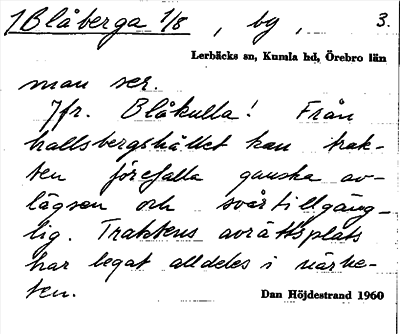 1 Blåberga 1/8, bg, 3.
Lerbäcks sn, Kumla hd, Örebro län
man ser.
Jfr. Blåkulla! Från
hallsbergshållet kan trak-
ten förefalla ganska av-
lägsen och svårtillgäng-
lig. Traktens avrättsplats
har legat alldeles i närhe-
ten.
Dan Höjdestrand 1960